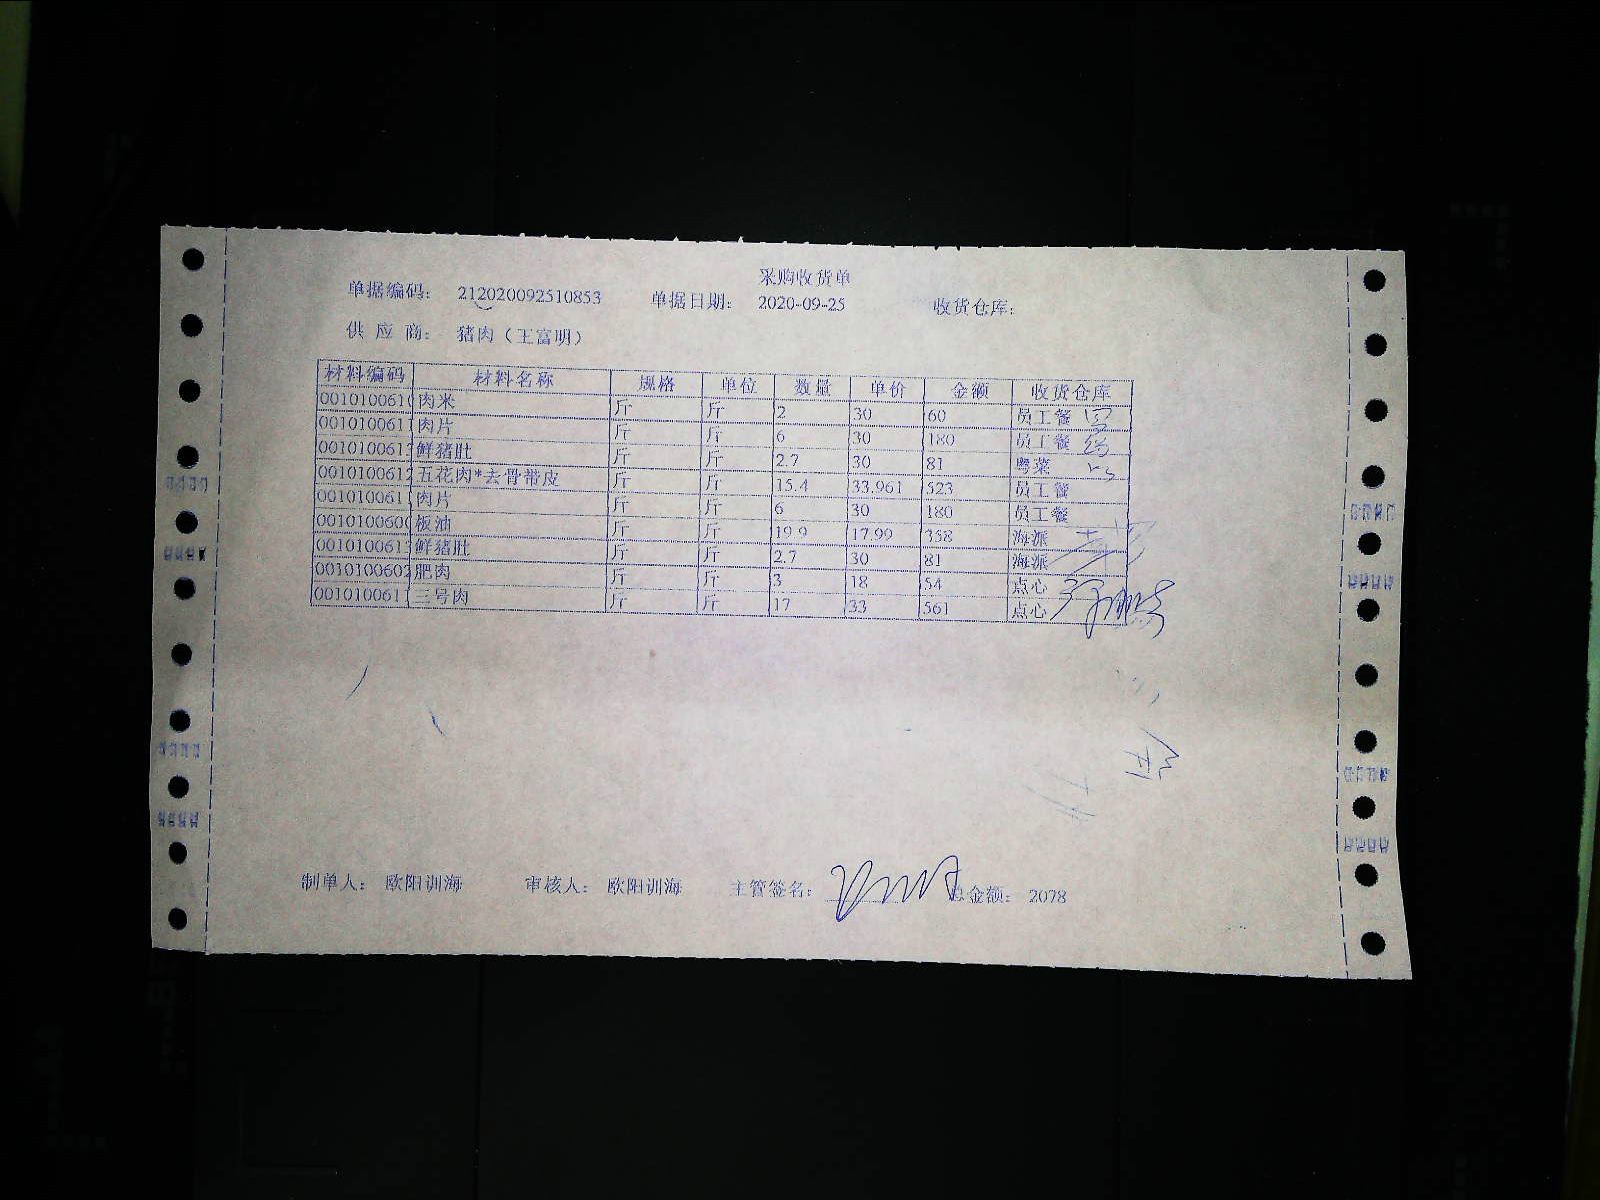 采购收货单
单据编码: 212020092510853 单据日期: 2020-09-25 收货仓库:
供 应 商: 猪肉(王富明)
材料编码 材料名称 规格 单位 数量 单价 金额 收货仓库
0010100610 肉米 斤 斤 2 30 60 员工餐
0010100611 肉片 斤 斤 6 30 180 员工餐
0010100613 鲜猪肚 斤 斤 2.7 30 81 粤菜
0010100612 五花肉*去骨带皮 斤 斤 15.4 33.961 523 员工餐
0010100611 肉片 斤 斤 6 30 180 员工餐
0010100600 板油 斤 斤 19.9 17.99 358 海派
0010100613 鲜猪肚 斤 斤 2.7 30 81 海派
0010100602 肥肉 斤 斤 3 18 54 点心
0010100611 三号肉 斤 斤 17 33 561 点心
制单人: 欧阳训海 审核人: 欧阳训海 主管签名: 总金额: 2078